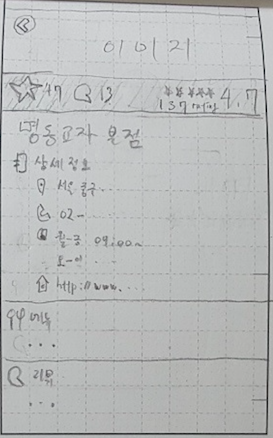 이미지
47 13 ★★★★★ 4.7
137
명동교자 본점
상세 정보
서울 중구
02-
월-금 09:00~
토-일
http://www. ...
메뉴
...
리뷰
...